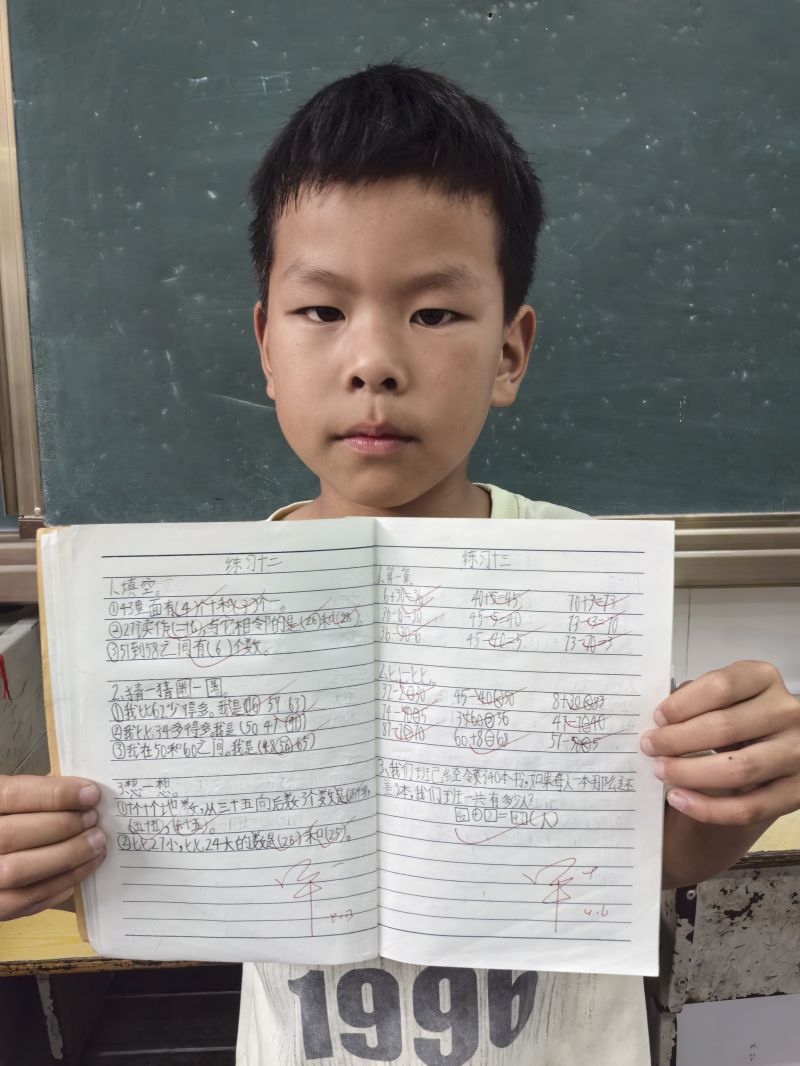 练习十二
1.填空。
①43里面有(4)个十和(3)个一。
②27读作(二十七),与它相邻的是(26)和(28)。
③51到58之间有(6)个数。
2.猜一猜圈一圈。
①我比62少得多,我是(10 59 63)
②我比34多得多,我是(50 41 90)
③我在50和60之间。我是(48 56 65)
3.想一想。
十个十个地数,从三十五向后数3个数是
(五十五),(六十五)。
②比27小,比24大的数是(26)和(25)。
4.3
练习十三
1.算一算
6+30=36 40+5=45 70+3=73
36-6=30 45-5=40 73-3=70
36-30=6 45-40=5 73-70=3
2.比一比。
3.我们班已经领了40本书,如果每人一本那么还
差5本,我们班一共有多少人?
(人)
4.6
1996